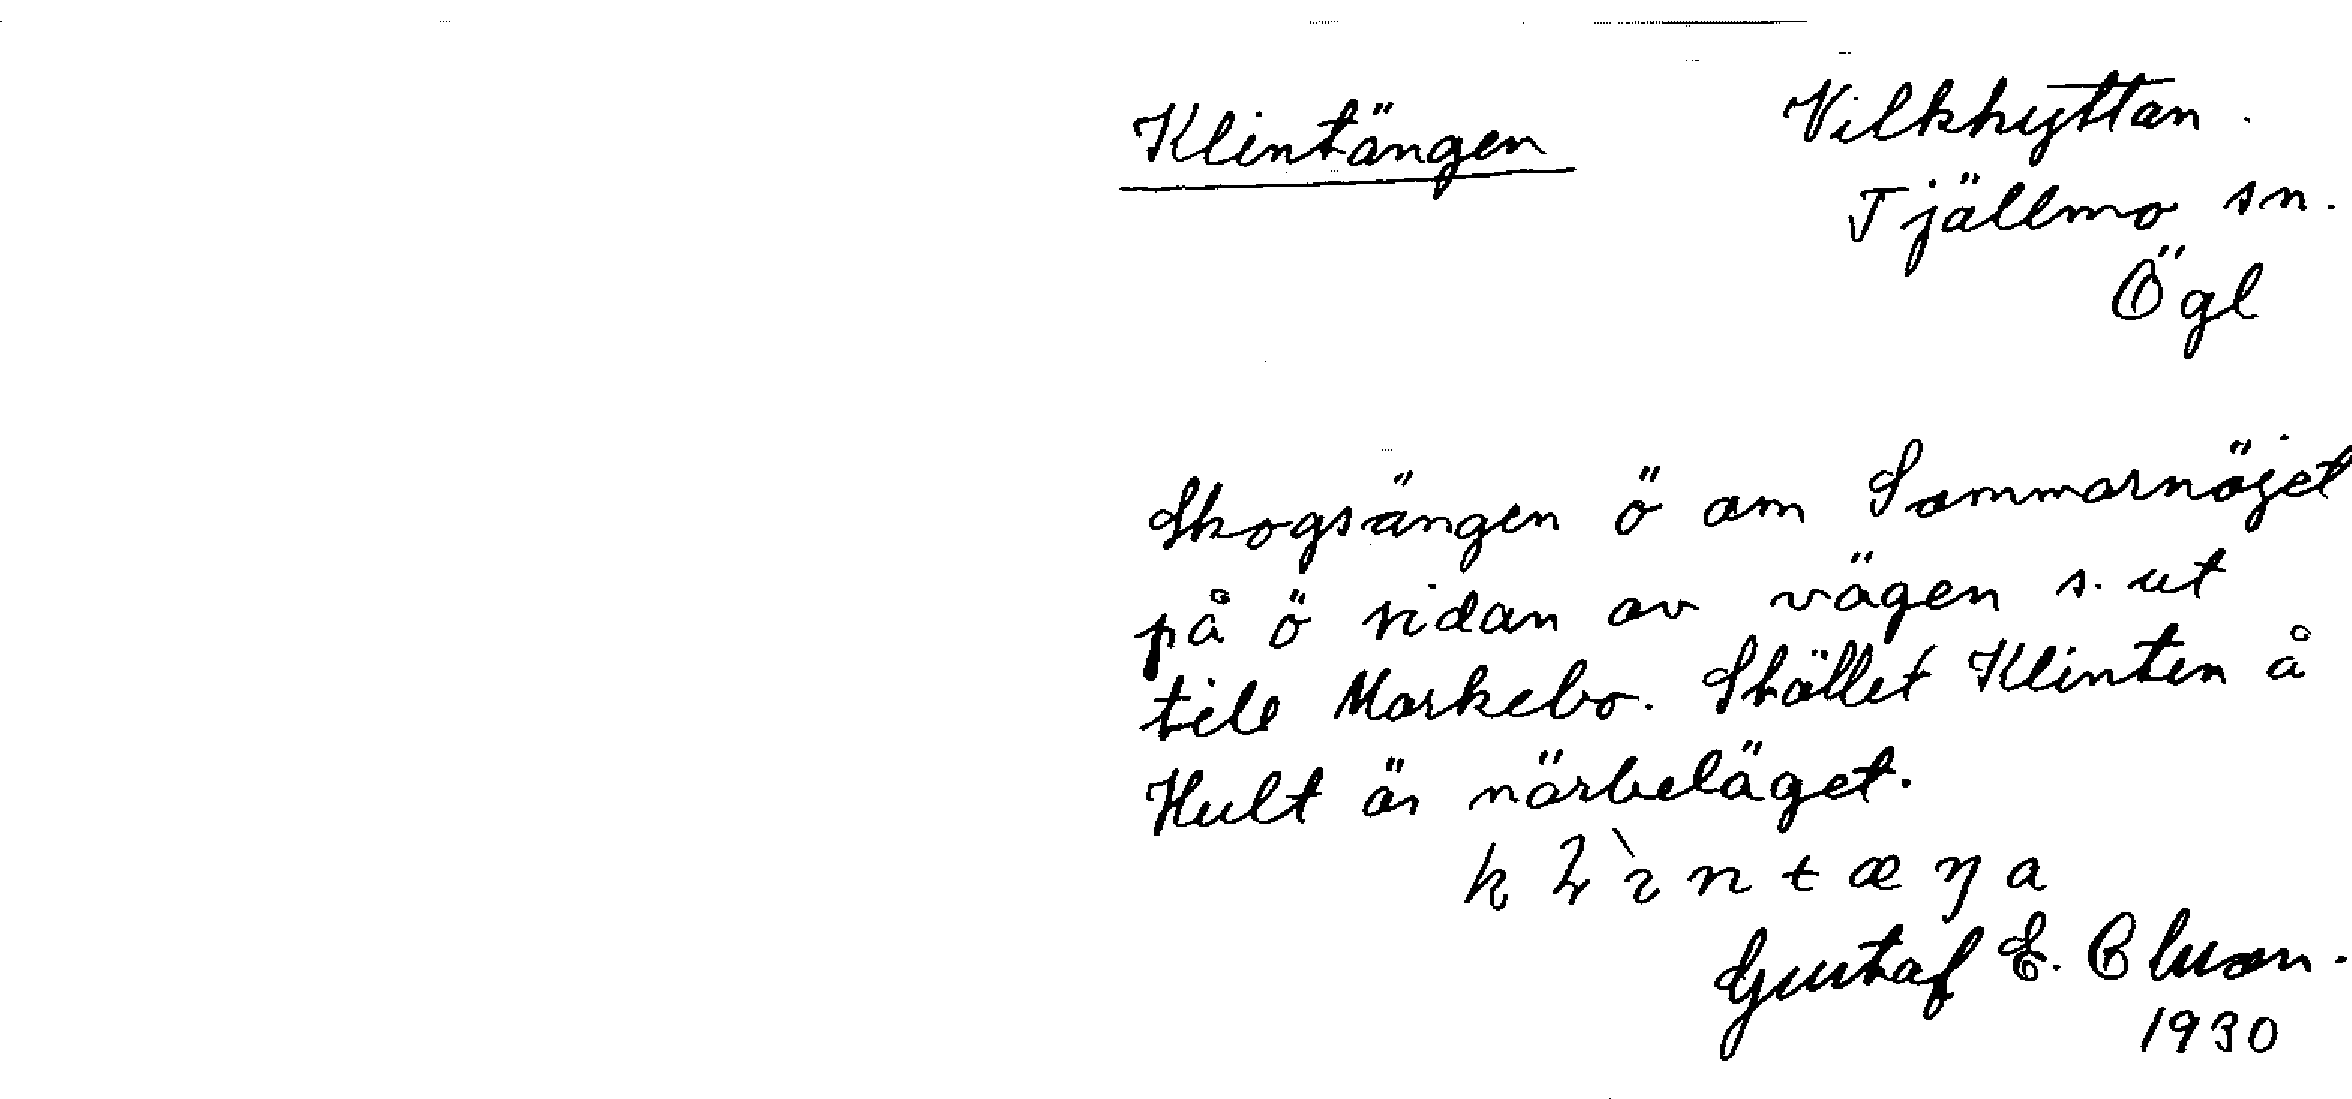 Klintängen
Vilkhyttan.
Tjällmo sn.
Ögl
Skogsängen ö om Sommarnöjet
på ö sidan av vägen s. ut
till Markebo. Stället Klinten å
Hult är närbeläget.
Gustaf E.
1930